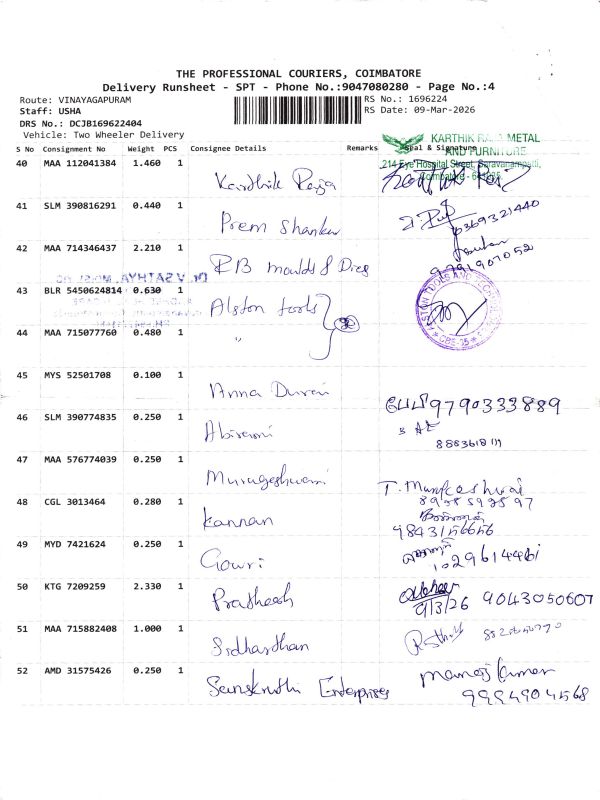 THE PROFESSIONAL COURIERS, COIMBATORE
Delivery Runsheet - SPT - Phone No.:9047080280 - Page No.:4
Route: VINAYAGAPURAM
Staff: USHA
DRS No.: DCJB169622404
Vehicle: Two Wheeler Delivery
RS No.: 1696224
RS Date: 09-Mar-2026
S No Consignment No Weight PCS Consignee Details Remarks Seal & Signature
KARTHIK RAJA METAL
AND FURNITURE
214 Eye Hospital Street, Saravanampatti,
Coimbatore - 641035
40 MAA 112041384 1.460 1 Karthik Raja
41 SLM 390816291 0.440 1 Prem Shankar
42 MAA 714346437 2.210 1 RB moulds & Dies
9791907052
43 BLR 5450624814 0.630 1 Alston tools
44 MAA 715077760 0.480 1 "
CBE-35
45 MYS 52501708 0.100 1 Anna Durai
பேபி 9790333889
46 SLM 390774835 0.250 1 Abirami
47 MAA 576774039 0.250 1 Murugeshwari
48 CGL 3013464 0.280 1 Kannan
9843156656
49 MYD 7421624 0.250 1 Gowri
50 KTG 7209259 2.330 1 Pratheesh
9/3/26 9043050607
51 MAA 715882408 1.000 1 Sidhardhan
52 AMD 31575426 0.250 1 Sanskruthi Enterprises
Manoj Kumar
9994904568